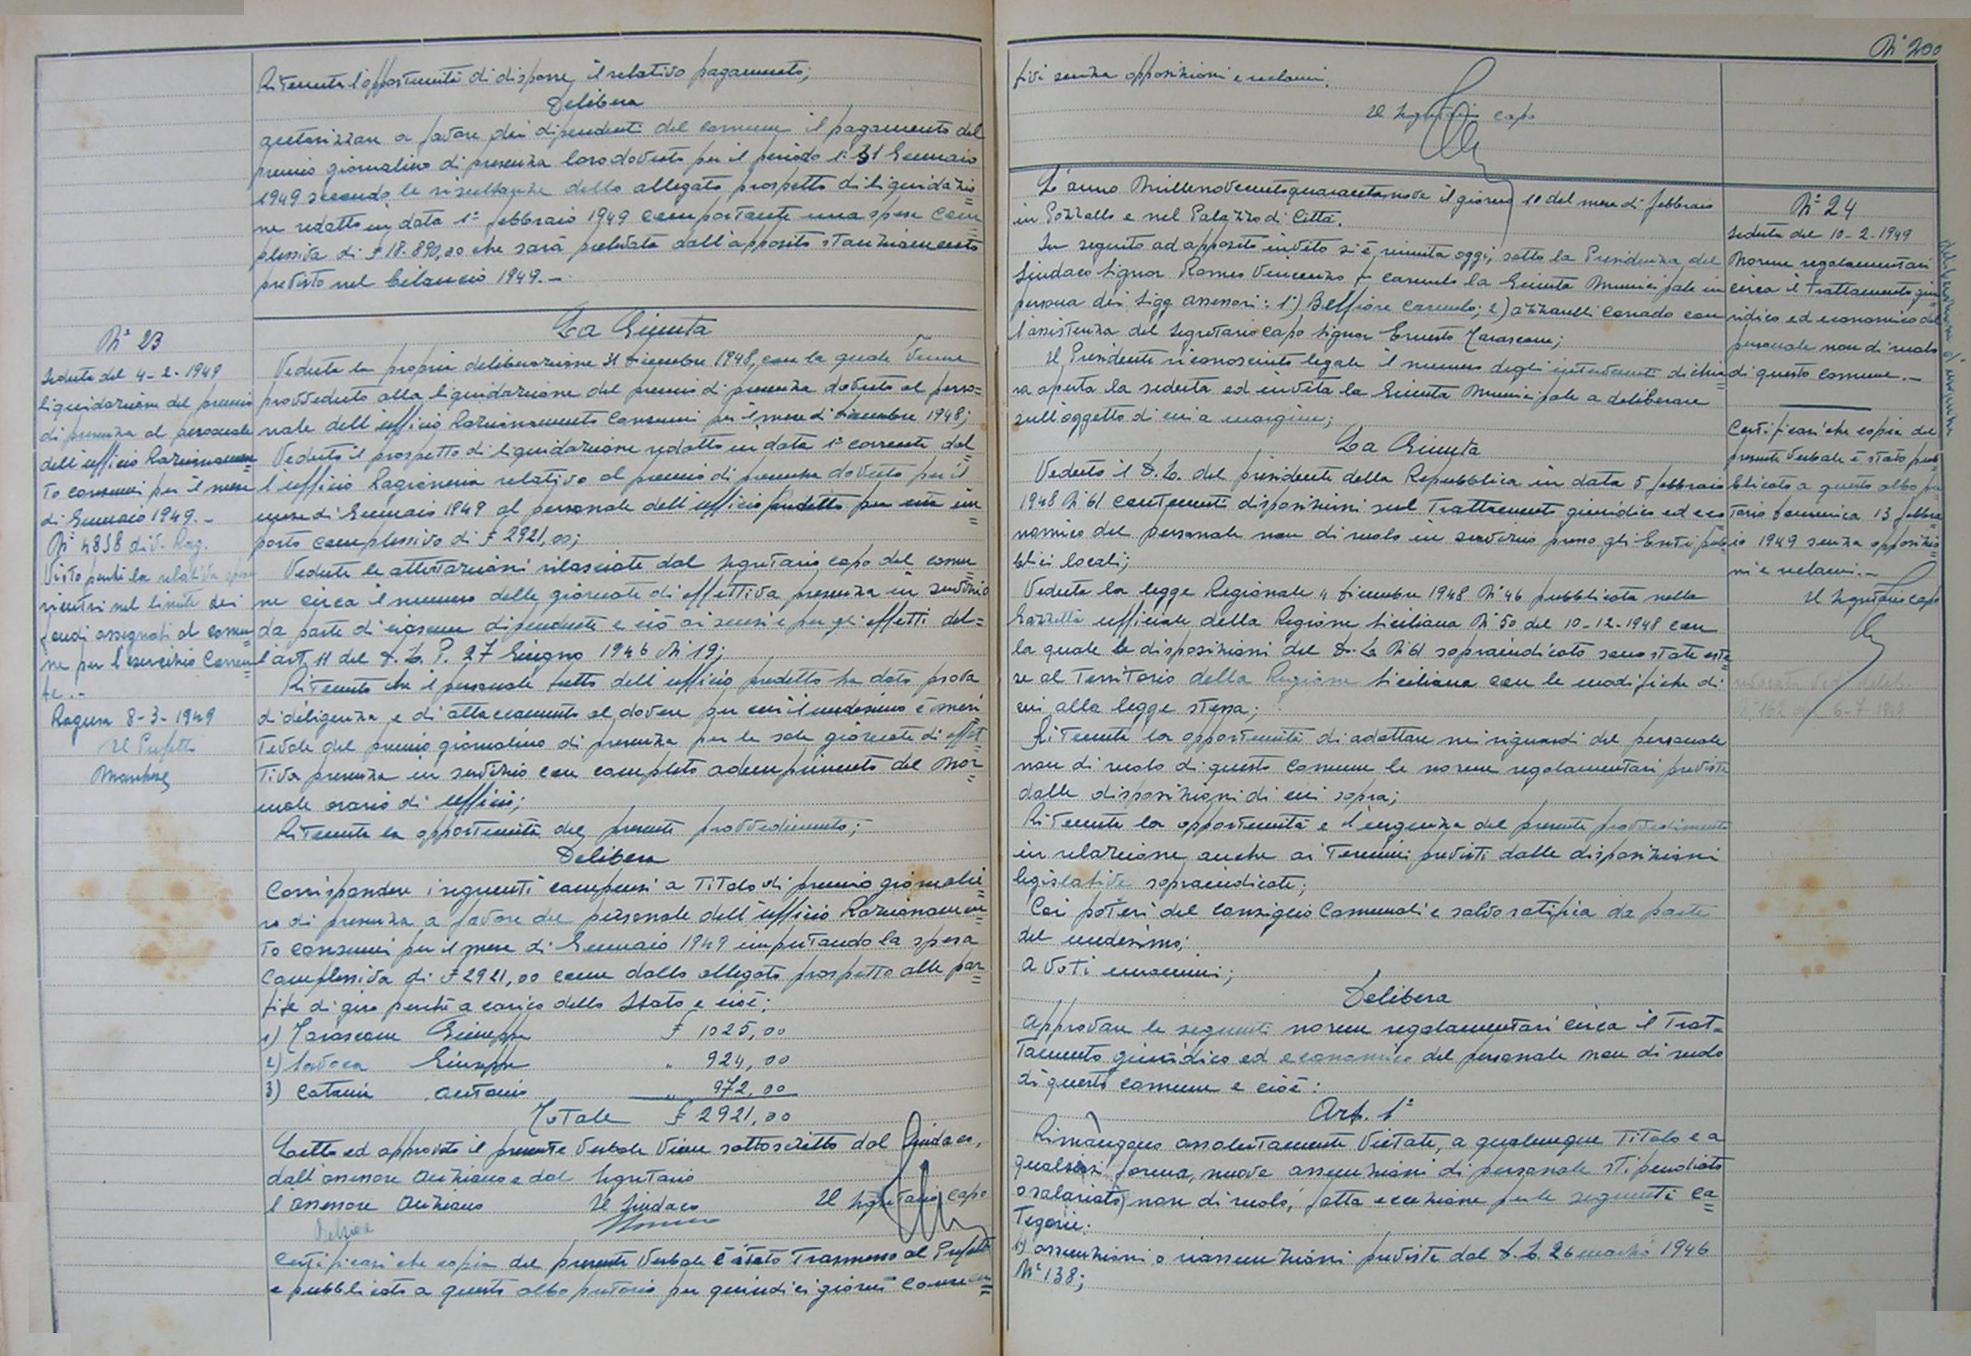 Ritenuta l'opportunità di disporre il relativo pagamento;
Delibera
autorizzare a favore dei dipendenti del comune il pagamento del
premio giornaliero di presenza loro dovuto per il periodo 1° 31 Gennaio
1949 secondo le risultanze dello allegato prospetto di liquidazio=
ne redatto in data 1° febbraio 1949 comportante una spesa com
plessiva di £ 18.890,00 che sarà prelevata dall'apposito stanziamento
previsto nel bilancio 1949.-
N° 23
Seduta del 4-2-1949
liquidazione del premio
di presenza al personale
dell'ufficio Razionamen=
to consumi per il mese
di Gennaio 1949.-
N° 4858 div. Rag.
Visto perché la relativa spesa
rientri nel limite dei
fondi assegnati al comu=
ne per l'esercizio corren=
te.-
Ragusa 8-3-1949
Il Prefetto
La Giunta
Veduta la propria deliberazione 31 dicembre 1948, con la quale venne
provveduto alla liquidazione del premio di presenza dovuto al perso=
nale dell'ufficio Razionamento Consumi per il mese di dicembre 1948;
Veduto il prospetto di liquidazione redatto in data 1° corrente dal=
l'ufficio Ragioneria relativo al premio di presenza dovuto per il
mese di Gennaio 1949 al personale dell'ufficio predetto per un im=
porto complessivo di £ 2921,00;
Vedute le attestazioni rilasciate dal segretario capo del comu
ne circa il numero delle giornate di effettiva presenza in servizio
da parte di ciascun dipendente e ciò ai sensi e per gli effetti del=
l'art. 11 del D.L.P. 27 Giugno 1946 N° 19;
Ritenuto che il personale tutto dell'ufficio predetto ha dato prova
di diligenza e di attaccamento al dovere per cui il medesimo è meri
tevole del premio giornaliero di presenza per le sole giornate di effet=
tiva presenza in servizio con completo adempimento del nor=
male orario di ufficio;
Ritenuta la opportunità del presente provvedimento;
Delibera
Corrispondere i seguenti compensi a titolo di premio giornalie=
ro di presenza a favore del personale dell'ufficio Razionamen=
to consumi per il mese di Gennaio 1949 imputando la spesa
complessiva di £ 2921,00 come dallo allegato prospetto alle par=
tite di giro perché a carico dello Stato e cioè:
1) Tarascone Giuseppe £ 1025,00
2) Savoca Giuseppe " 924,00
3) Catania Antonio " 972,00
Totale £ 2921,00
Letto ed approvato il presente verbale viene sottoscritto dal Sindaco,
dall'assessore Anziano e dal Segretario
l'Assessore Anziano Il Sindaco Il Segretario capo
Certificasi che copia del presente verbale è stato trasmesso al Prefetto
e pubblicato a questo albo pretorio per quindici giorni consecu=
N° 200
tivi senza opposizioni e reclami.
Il Segretario capo
L'anno Millenovecentoquarantanove il giorno 10 del mese di febbraio
in Pozzallo e nel Palazzo di Città.
In seguito ad apposito invito si è riunita oggi, sotto la Presidenza del
Sindaco Signor Romeo Vincenzo fu Carmelo la Giunta Municipale in
persona dei Sigg. assessori: 1°) Belfiore Carmelo; 2) Azzarelli Corrado con
l'assistenza del Segretario capo Signor Ernesto Tarascone;
Il Presidente riconosciuto legale il numero degli intervenuti dichia=
ra aperta la seduta ed invita la Giunta Municipale a deliberare
sull'oggetto di cui a margine;
La Giunta
Veduto il D.L. del presidente della Repubblica in data 5 febbraio
1948 N° 61 contenenti disposizioni sul trattamento giuridico ed eco
nomico del personale non di ruolo in servizio presso gli Enti pub=
blici locali;
Veduta la legge Regionale 4 dicembre 1948 N° 46 pubblicata nella
Gazzetta ufficiale della Regione Siciliana N° 50 del 10-12-1948 con
la quale le disposizioni del D.L. N° 61 sopraindicato sono state este=
se al territorio della Regione Siciliana con le modifiche di
cui alla legge stessa;
Ritenuta la opportunità di adottare nei riguardi del personale
non di ruolo di questo comune le norme regolamentari previste
dalle disposizioni di cui sopra;
Ritenuta la opportunità e l'urgenza del presente provvedimento
in relazione anche ai termini previsti dalle disposizioni
legislative sopraindicate;
Coi poteri del Consiglio Comunale e salvo ratifica da parte
del medesimo;
a voti unanimi;
Delibera
approvare le seguenti norme regolamentari circa il trat=
tamento giuridico ed economico del personale non di ruolo
di questo comune e cioè:
Art. 1°
Rimangono assolutamente vietate, a qualunque titolo e a
qualsiasi forma, nuove assunzioni di personale stipendiato
o salariato non di ruolo, fatta eccezione per le seguenti ca=
tegorie:
1°) assunzioni o riassunzioni previste dal D.L. 26 marzo 1946
N° 138;
N° 24
Seduta del 10-2-1949
Norme regolamentari
circa il trattamento giu=
ridico ed economico del
personale non di ruolo
di questo comune.-
Certificasi che copia del
presente verbale è stato pub=
blicato a questo albo pre=
torio domenica 13 febbra=
io 1949 senza opposizio=
ni e reclami.-
Il Segretario capo
N° 162 del 6-7 1949